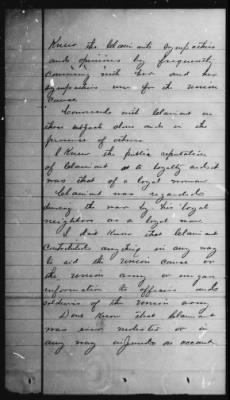 Knew the Claimants sympathies
and opinions by frequently
conversing with her and her
sympathies were for the Union
cause.
Conversed with Claimant on
those subject alone and in the
presence of others
I Knew the public reputation
of Claimant as to loyalty and it
was that of a loyal woman
Claimant was regarded
during the war by his loyal
neighbors as a loyal man
I dont Know that Claimant
Contributed anything in any way
to aid the union cause or
the union army or ever gave
information to officers and
soldiers of the union army
Dont Know that Claimant
was ever molested or in
any way injured on account